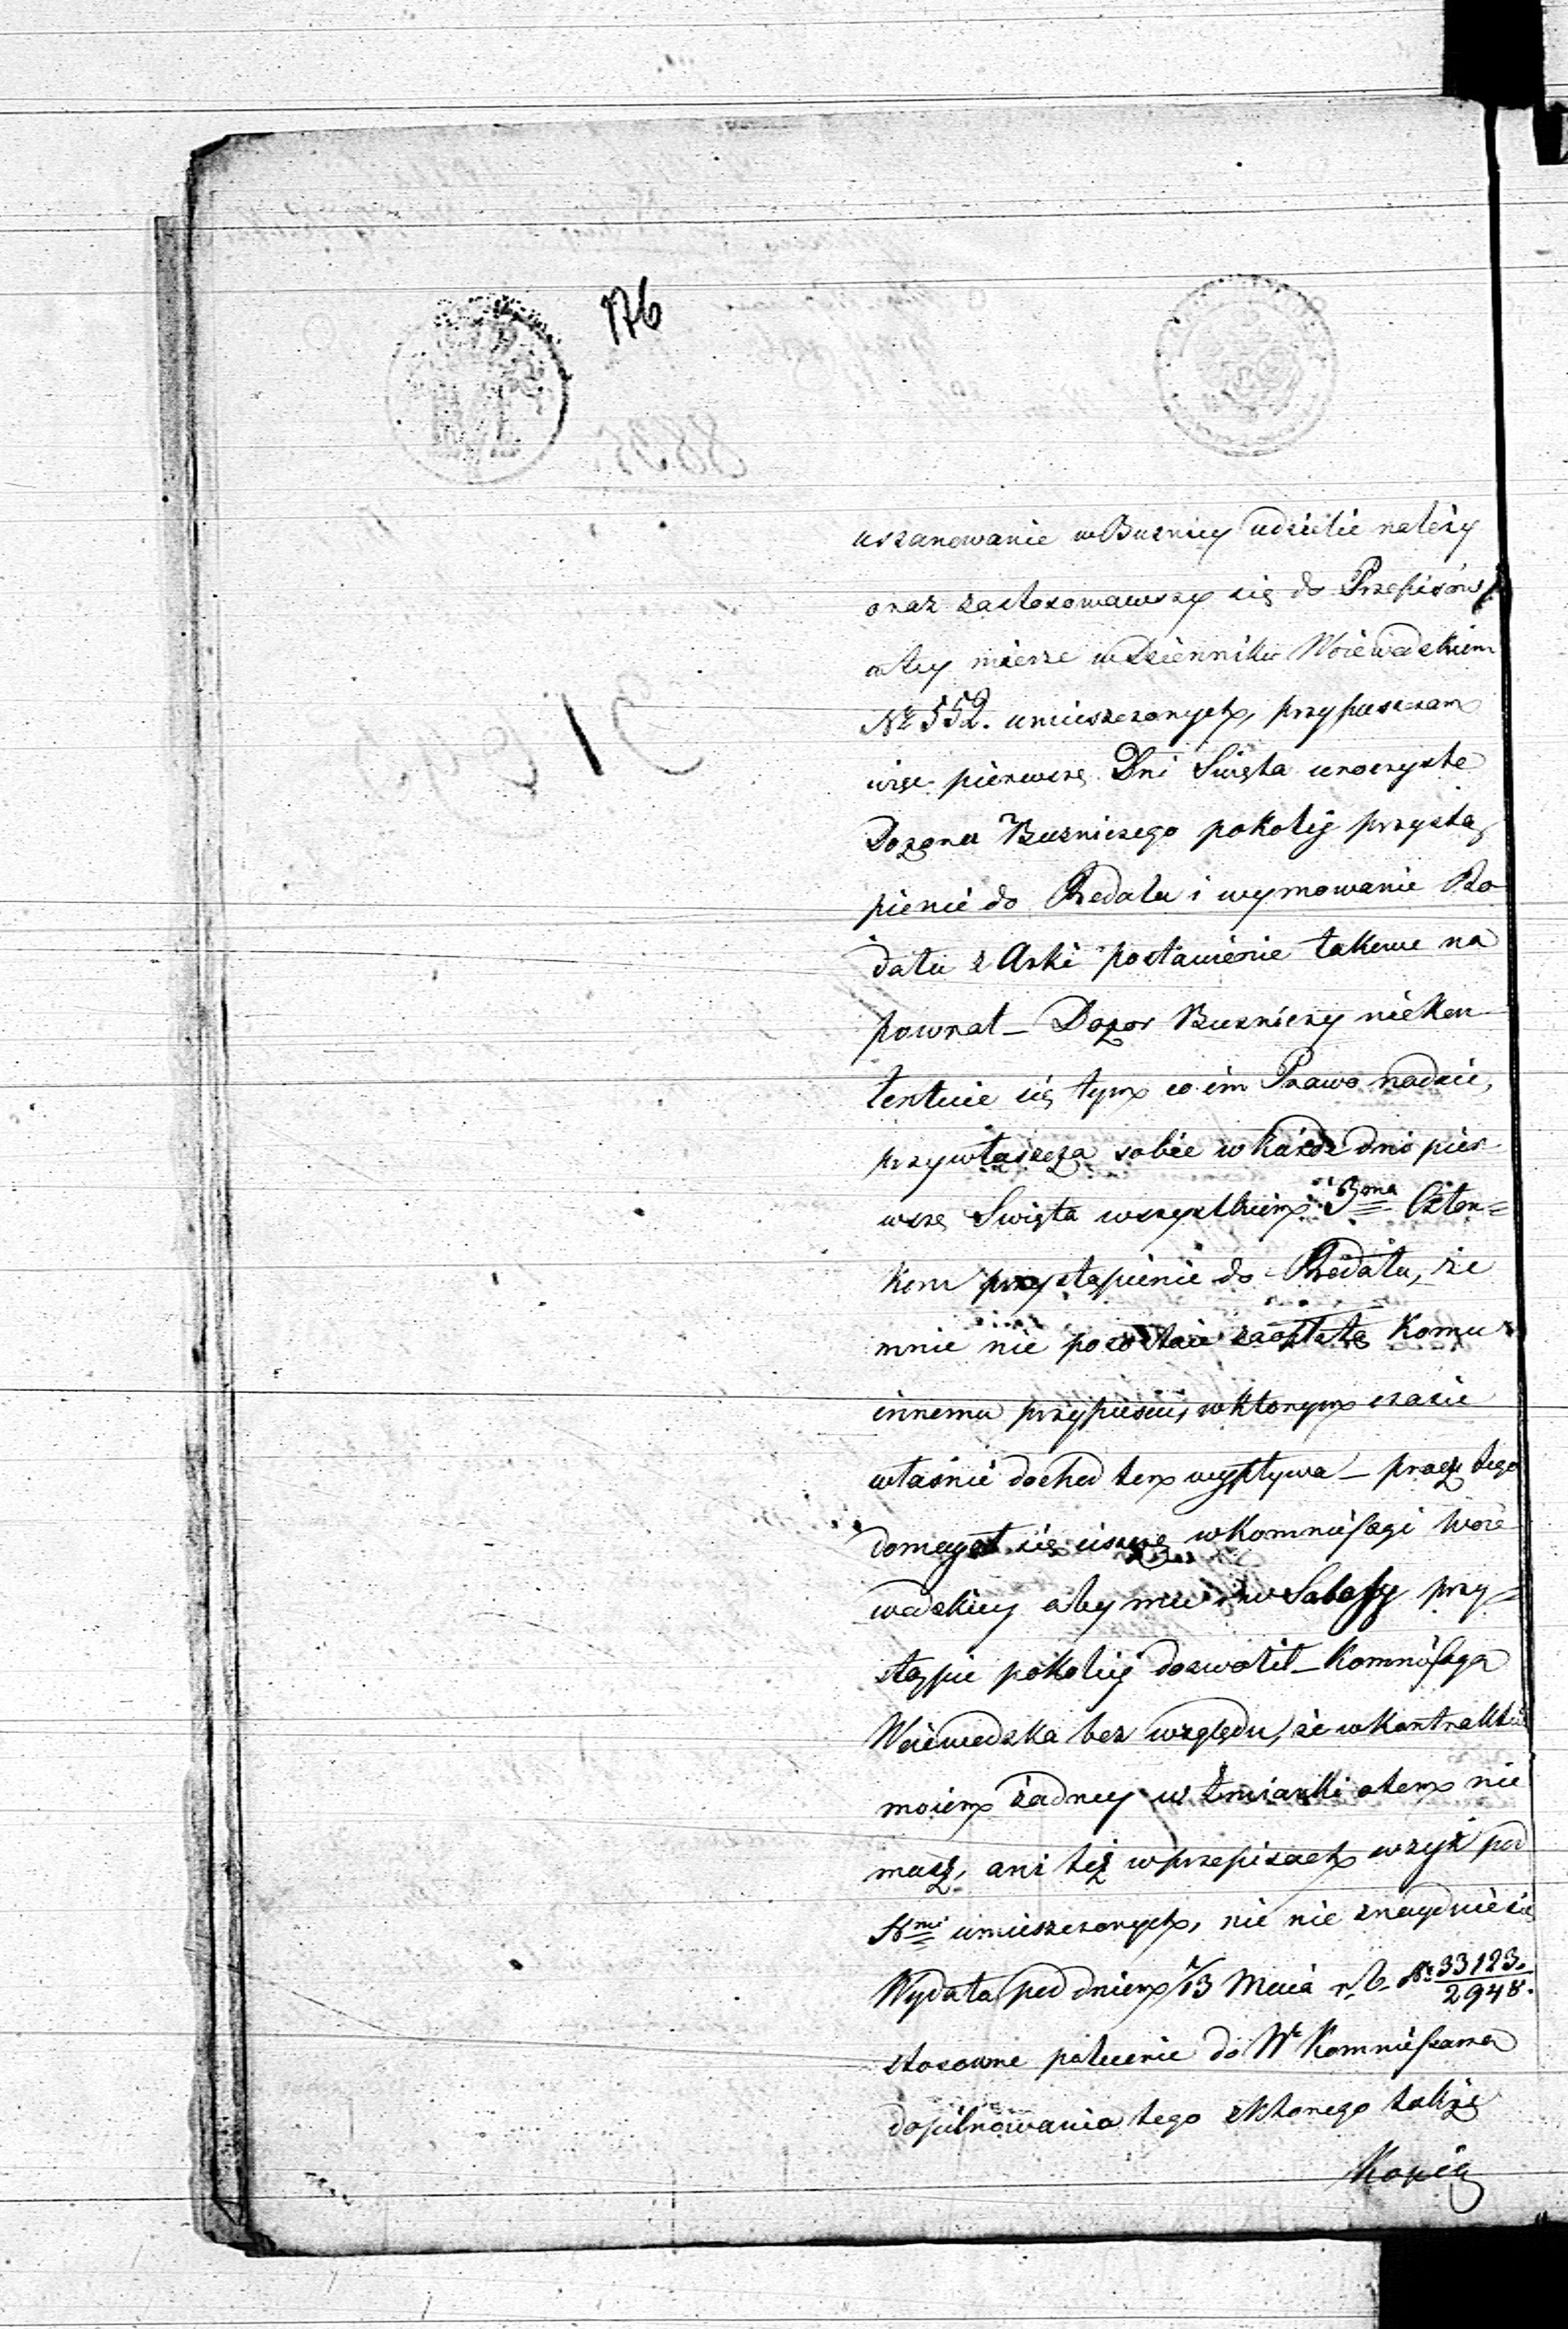 176
uszanowanie w Buznicy udzielić należy
oraz zastosowawszy się do Przepisów
w tey mierze w Dzienniku Woiewodzkim
Nº 552. umieszczonych, przypuszczam
więc pierwsze Dni Święta uroczyste
Dozoru Buzniczego pokoleÿ przystą
pienie do Rodału i wymowanie Ro
dału z Arki postawienie takowe na
powrot – Dozor Buzniczy niekon
tentuie się tym co im Prawo nadaie,
przywłaszcza sobie w każde dni pier
wsze Święta wszystkiem 3ma Człon=
kom przystąpienie do Rodału, że
mnie nie pozostaie za opłatą komu
innemu przypuscić, w ktorym czasie
własnie dochod ten wypływa – procz tego
domagał się ieszcze w Kommissyi Woie
wodzkiey aby mu i w Sabassy przy=
stąpić pokoleÿ dozwolił – Kommissya
Woiewodzka bez względu, że w kontrakcie
moiem żadney wzmianki otem nie
masz, ani też w przepisach wzyż pod
Nmi umieszczonych, nic nie znayduie się
Wydała pod dniem 1/13 Maia r. b. Nº 33123./2948.
stosowne polecenie do Wº Kommissarza
dopilnowania tego z ktorego także
Kopią